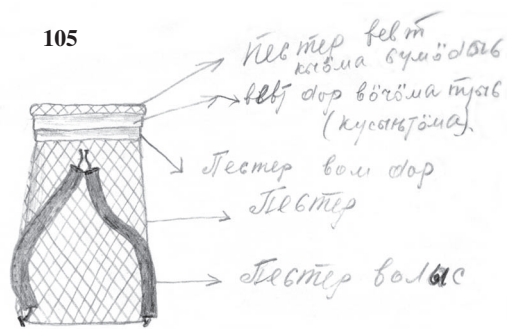 105
Пестер вевт
кыӧма сумӧдысь
вевт дор вӧчӧма
(кусыньтӧма).
Пестер вом дор
Пестер
Пестер волыс